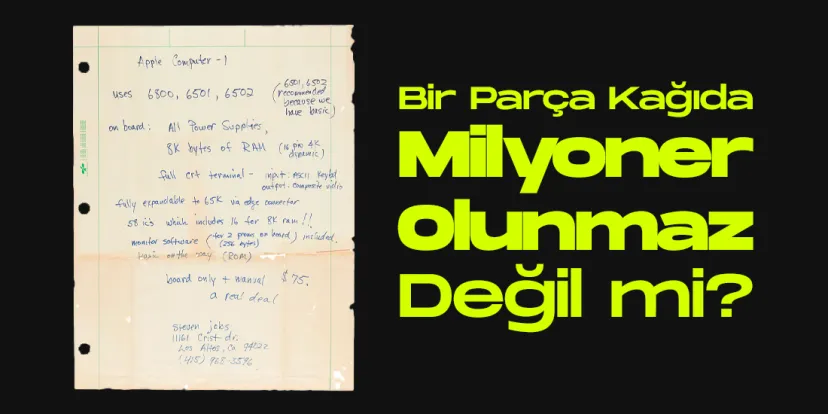 Apple Computer - 1
uses 6800, 6501, 6502 (6501, 6502
recommended
because we
have basic)
on board: All Power Supplies,
8K bytes of RAM (16 pin 4K
dynamic)
full crt terminal - input: ASCII Keybd
output: composite video
fully expandable to 65K via edge connector
58 ic's which includes 16 for 8K ram!!
monitor software (for 2 proms on board) included.
(256 bytes)
basic on the way (ROM)
board only + manual $75.
a real deal
steven jobs
11161 Crist dr.
Los Altos, Ca 94022
(415) 968-3596
Bir Parça Kağıda
Milyoner
Olunmaz
Değil mi?